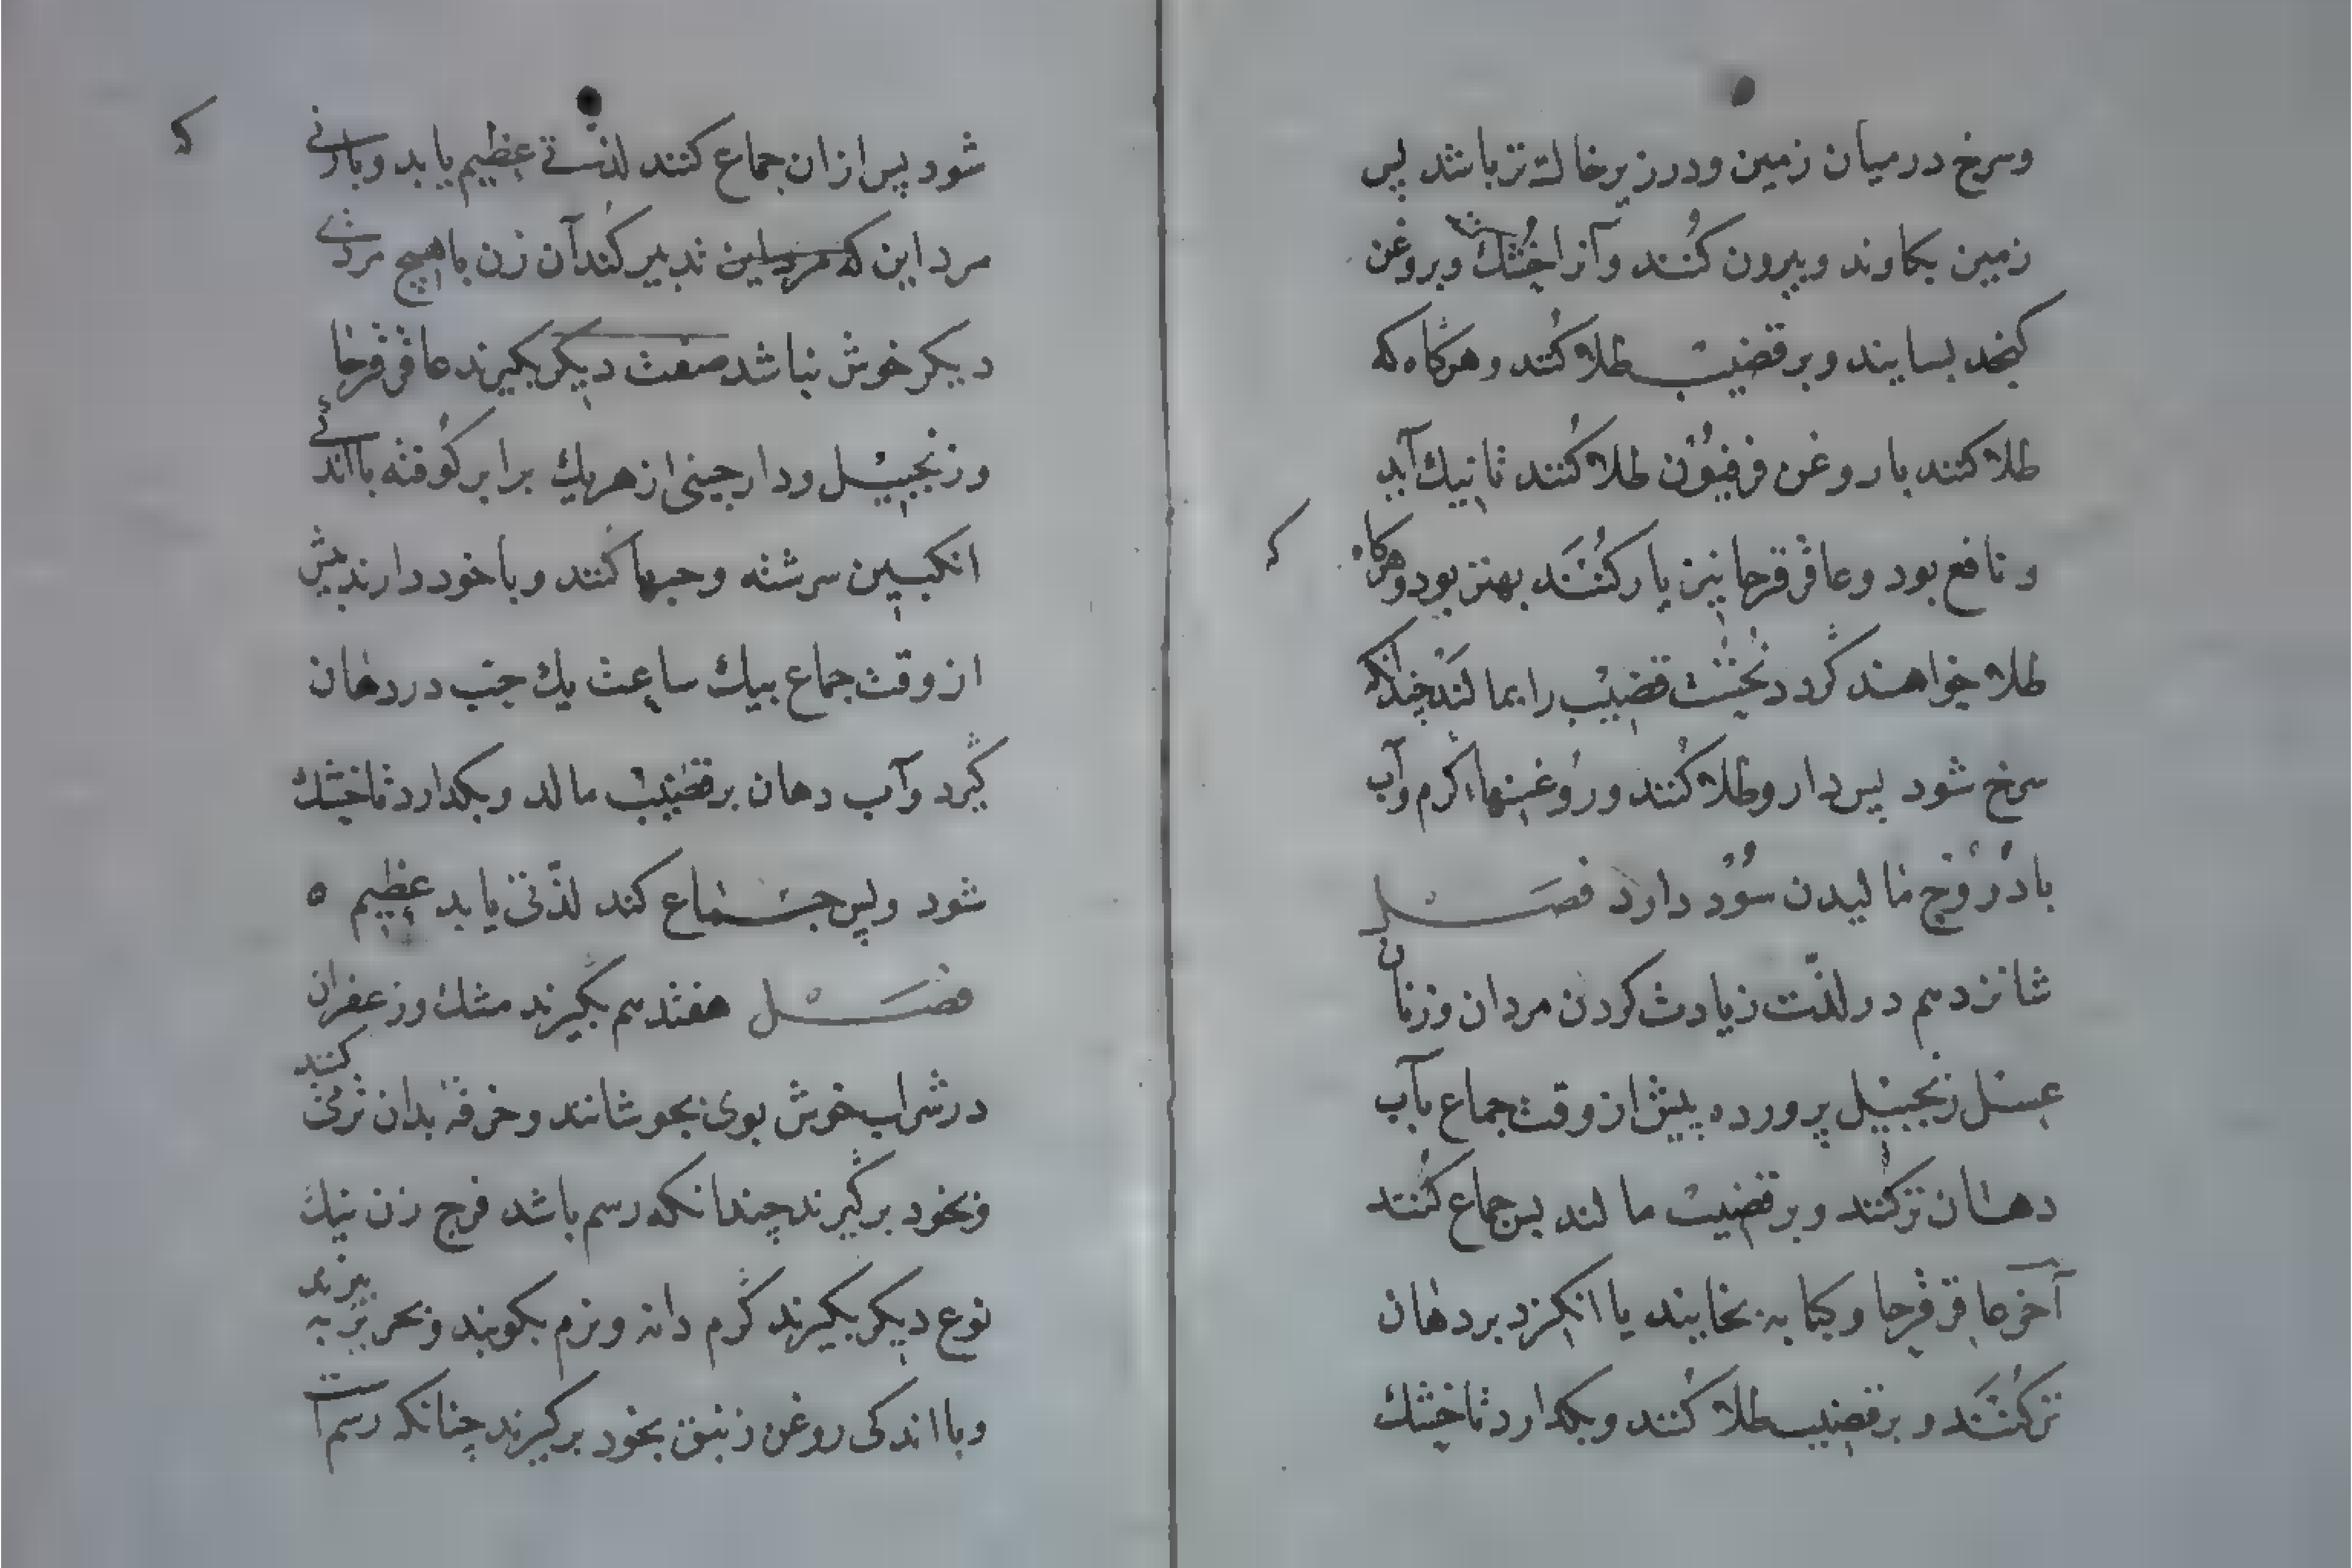 وسرخ درمیان زمین ودرزیرخاک تر باشد پس
زمین بکاوند وبیرون کُنند وآنرا خشک وبروغن
کنجد بسایند وبر قضیب طلا کُنند وهرکاه که
طلا کنند با روغن فرفیُون طلا کُنند تا نیک آید
و نافع بود وعاقرقرحا نیز یار کُنَند بهتر بود وهرکاه که
طلا خواهند کرد نخست قضیب را بمالند چندانکه
سرخ شود پس دارو طلا کُنند وروغنها کرم وآب
بادرُوج مالیدن سُود دارد فصَل
شانزدهم در لذّت زیادت کردن مردان وزنان
عسل زنجبیل پرورده پیش از وقت جماع بآب
دهان تر کنند وبر قضیب مالند پس جماع کُنند
آخر عاقرقرحا وکبابه بخایند یا انکزد بر دهان
تر کُنَند و بر قضیب طلا کُنند وبکدارد تا خشک
شود پس ازان جماع کنند لذتے عظیم یابد وبا زنے که
مرد این تدبیر کُند آن زن با هیچ مردے
دیکر خوش نباشد صفت دیکر بکیرند عاقرقرحا
وزنجبیل ودارچینی از هریک برابر کوفته با اندکے
انکبین سرشته وحبها کُنند وبا خود دارند پیش
از وقت جماع بیک ساعت یک حب در دهان
کیرد وآب دهان بر قضیب مالد وبکدارد تا خشک
شود وپس جماع کند لذّتی یابد عظیم ه
فصَل هفتدهم بکیرند مشک وزعفران
در شراب خوش بوی بجوشانند وخرقه بدان تر کنند
وبخود برکیرند چندانکه رسم باشد فرج زن نیک
نوع دیکر بکیرند کرم دانه ونرم بکوبند وبحریر ببیزند
وبا اندکی روغن زنبق بخود برکیرند چنانکه رسم است